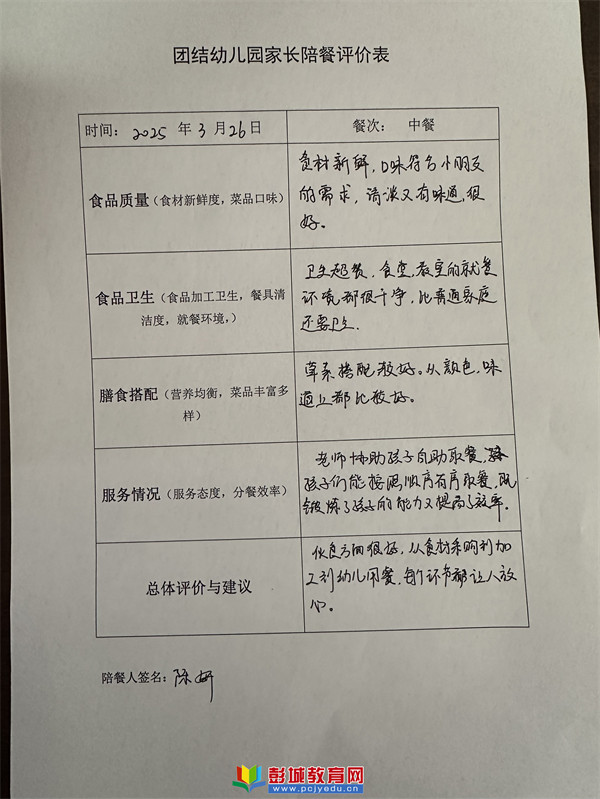 团结幼儿园家长陪餐评价表
时间： 2025 年 3 月 26 日
餐次： 中餐
食品质量（食材新鲜度，菜品口味）
食材新鲜，口味符合小朋友
的需求，清淡又有味道，很
好。
食品卫生（食品加工卫生，餐具清
洁度，就餐环境，）
卫生超赞，食堂，教室的就餐
环境都很干净，比普通家庭
还要卫生
膳食搭配（营养均衡，菜品丰富多
样）
荤素搭配较好。从颜色，味
道上都比较好。
服务情况（服务态度，分餐效率）
老师协助孩子自助取餐，
孩子们能按照顺序有序取餐，既
锻炼了孩子的能力又提高了效率。
总体评价与建议
伙食方面很好，从食材采购到加
工到幼儿用餐，每个环节都让人放
心。
陪餐人签名： 陈妍
彭城教育网
www.pcjyedu.cn